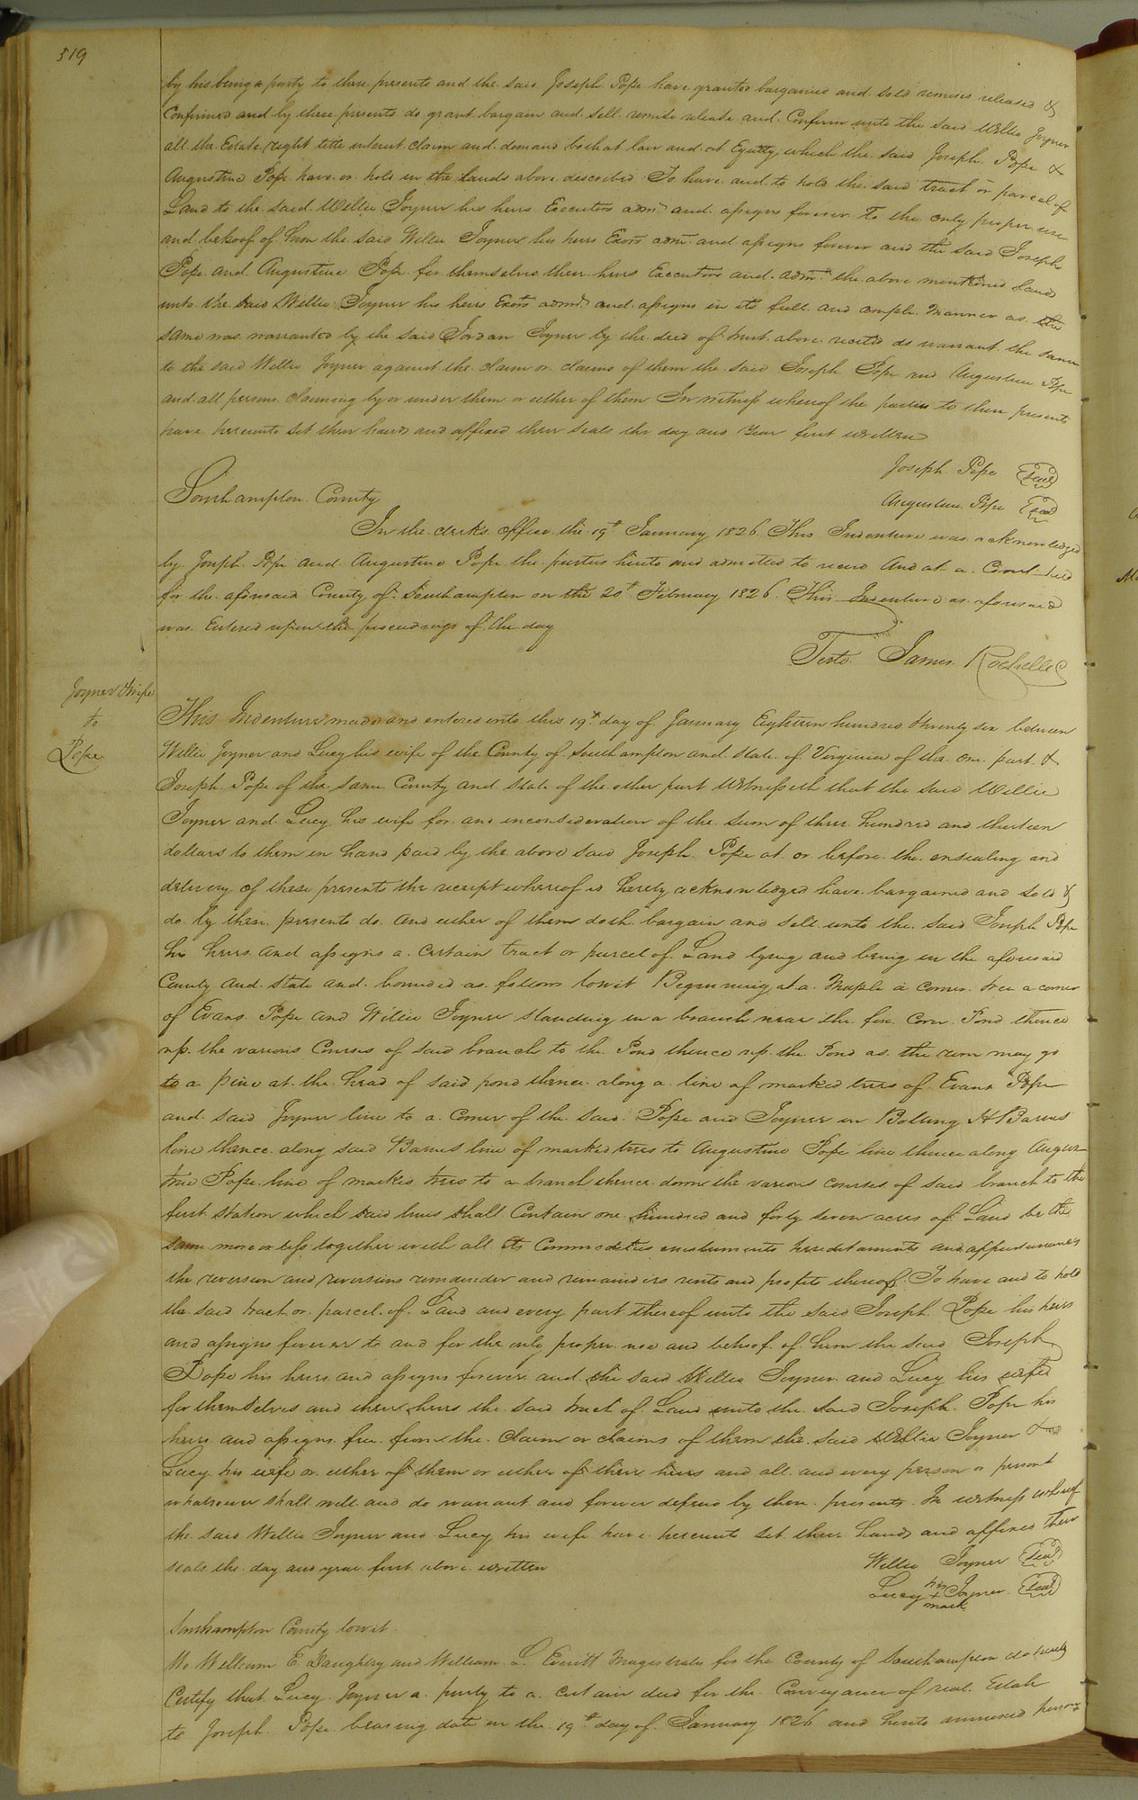 519
by his being a party to these presents and the said Joseph Pope have granted bargained and sold remised released &
Confirmed and by these presents do grant bargain and sell remise release and Confirm unto the said Willie Joyner
all the Estate right title interest claim and demand both at law and at Equity which the said Joseph Pope &
Augustine Pope have or hold in the Lands above described To have and to hold the said tract or parcel of
Land to the said Willie Joyner his heirs Executors admrs and assigns forever To the only proper use
and behoof of him the said Willie Joyner his heirs Exors admrs and assigns forever and the said Joseph
Pope and Augustine Pope for themselves their heirs Executors and admrs the above mentioned Land
unto the said Willie Joyner his heirs Exors admrs and assigns in its full and ample manner as the
same was warranted by the said Jordan Joyner by the deed of trust above recited do warrant the same
to the said Willie Joyner against the claim or claims of them the said Joseph Pope and Augustine Pope
and all persons claiming by or under them or either of them In witness whereof the parties to these presents
have hereunto set their hands and affixed their seals the day and year first written
Joseph Pope Seal
Augustine Pope Seal
Southampton County
In the clerks office the 19th January 1826. This Indenture was acknowledged
by Joseph Pope and Augustine Pope the parties hereto and admitted to record And at a Court held
for the aforesaid County of Southampton on the 20th February 1826. This Indenture as aforesaid
was Entered upon the proceedings of the day
Teste James Rochelle C
Joyner & wife
to
Pope
This Indenture made and entered into this 19th day of January Eighteen hundred & twenty six between
Willie Joyner and Lucy his wife of the County of Southampton and State of Virginia of the one part &
Joseph Pope of the same County and State of the other part Witnesseth that the said Willie
Joyner and Lucy his wife for and in consideration of the sum of three hundred and thirteen
dollars to them in hand paid by the above said Joseph Pope at or before the ensealing and
delivery of these presents the receipt whereof is hereby acknowledged have bargained and sold &
do by these presents do and either of them doth bargain and sell unto the said Joseph Pope
his heirs and assigns a certain tract or parcel of Land lying and being in the aforesaid
County and State and bounded as follows towit Beginning at a Maple a corner tree a corner
of Evans Pope and Willie Joyner standing in a branch near the Corn Pond thence
up the various Courses of said branch to the Pond thence up the Pond as the run may go
to a pine at the head of said pond thence along a line of marked trees of Evans Pope
and said Joyner line to a Corner of the said Pope and Joyner in Bolling H Barnes
line thence along said Barnes line of marked trees to Augustine Pope line thence along Augus-
tine Pope line of marked trees to a branch thence down the various courses of said branch to the
first station which said lines shall Contain one hundred and forty seven acres of Land be the
same more or less together with all its Commodities emoluments hereditaments and appurtenances
the reversion and reversions remainder and remainders rents and profits thereof. To have and to hold
the said tract or parcel of Land and every part thereof unto the said Joseph Pope his heirs
and assigns forever to and for the only proper use and behoof of him the said Joseph
Pope his heirs and assigns forever and the said Willie Joyner and Lucy his wife
for themselves and their heirs the said tract of Land unto the said Joseph Pope his
heirs and assigns free from the claim or claims of them the said Willie Joyner &
Lucy his wife or either of them or either of their heirs and all and every person or persons
whatsoever shall will and do warrant and forever defend by these presents. In witness whereof
the said Willie Joyner and Lucy his wife have hereunto set their hands and affixed their
seals the day and year first above written
Willie Joyner Seal
Lucy her + mark Joyner Seal
Southampton County towit
We William E Daughtry and William L. Everitt Magistrates for the County of Southampton do hereby
Certify that Lucy Joyner a party to a certain deed for the Conveyance of real Estate
to Joseph Pope bearing date on the 19th day of January 1826 and hereto annexed